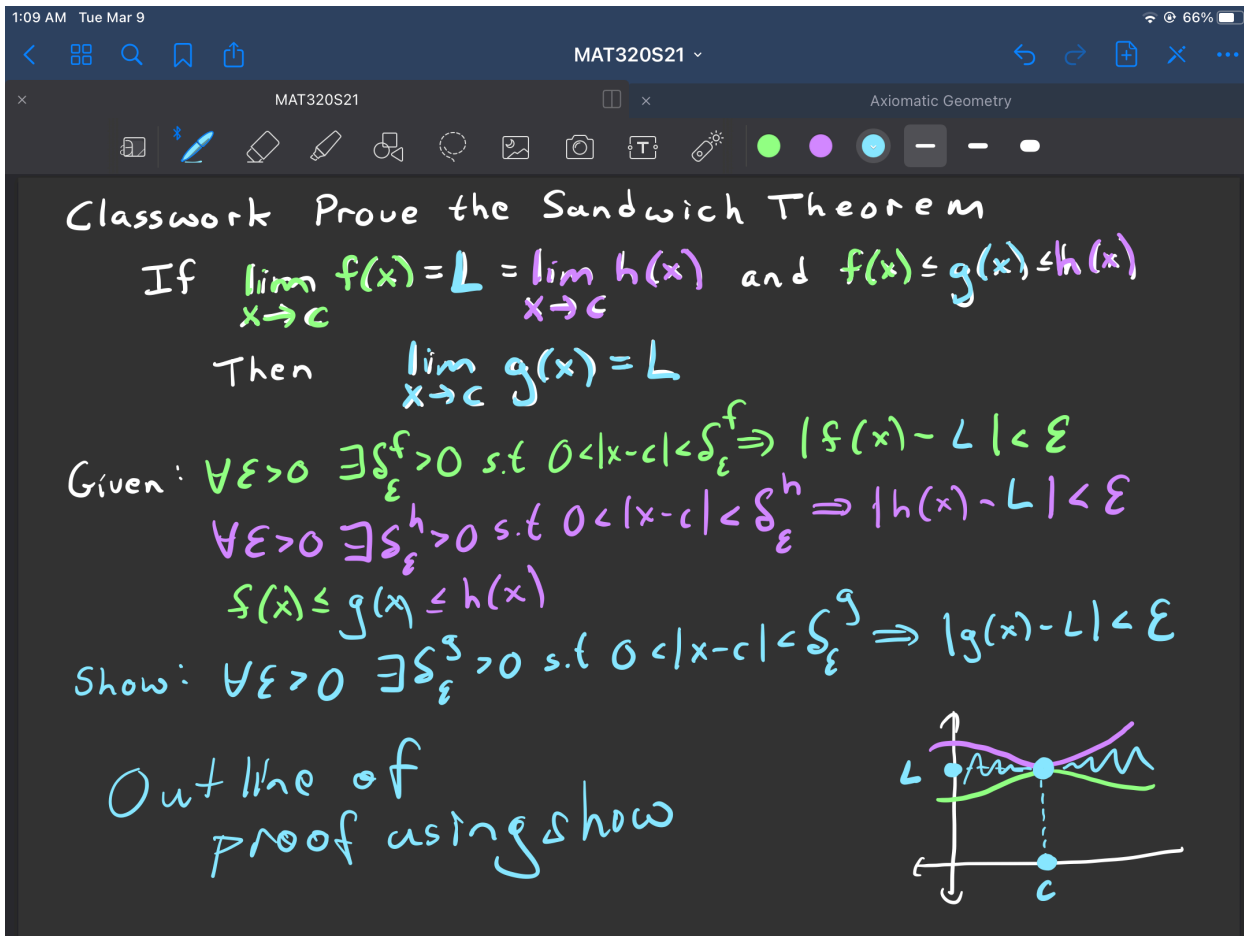 1:09 AM Tue Mar 9 66%
MAT320S21
MAT320S21 Axiomatic Geometry
T
Classwork Prove the Sandwich Theorem
If lim x→c f(x) = L = lim x→c h(x) and f(x) ≤ g(x) ≤ h(x)
Then lim x→c g(x) = L
Given: ∀ε>0 ∃δ_ε^f>0 s.t 0<|x-c|<δ_ε^f ⇒ |f(x)-L|<ε
∀ε>0 ∃δ_ε^h>0 s.t 0<|x-c|<δ_ε^h ⇒ |h(x)-L|<ε
f(x) ≤ g(x) ≤ h(x)
Show: ∀ε>0 ∃δ_ε^g>0 s.t 0<|x-c|<δ_ε^g ⇒ |g(x)-L|<ε
Outline of
proof using show
L
c